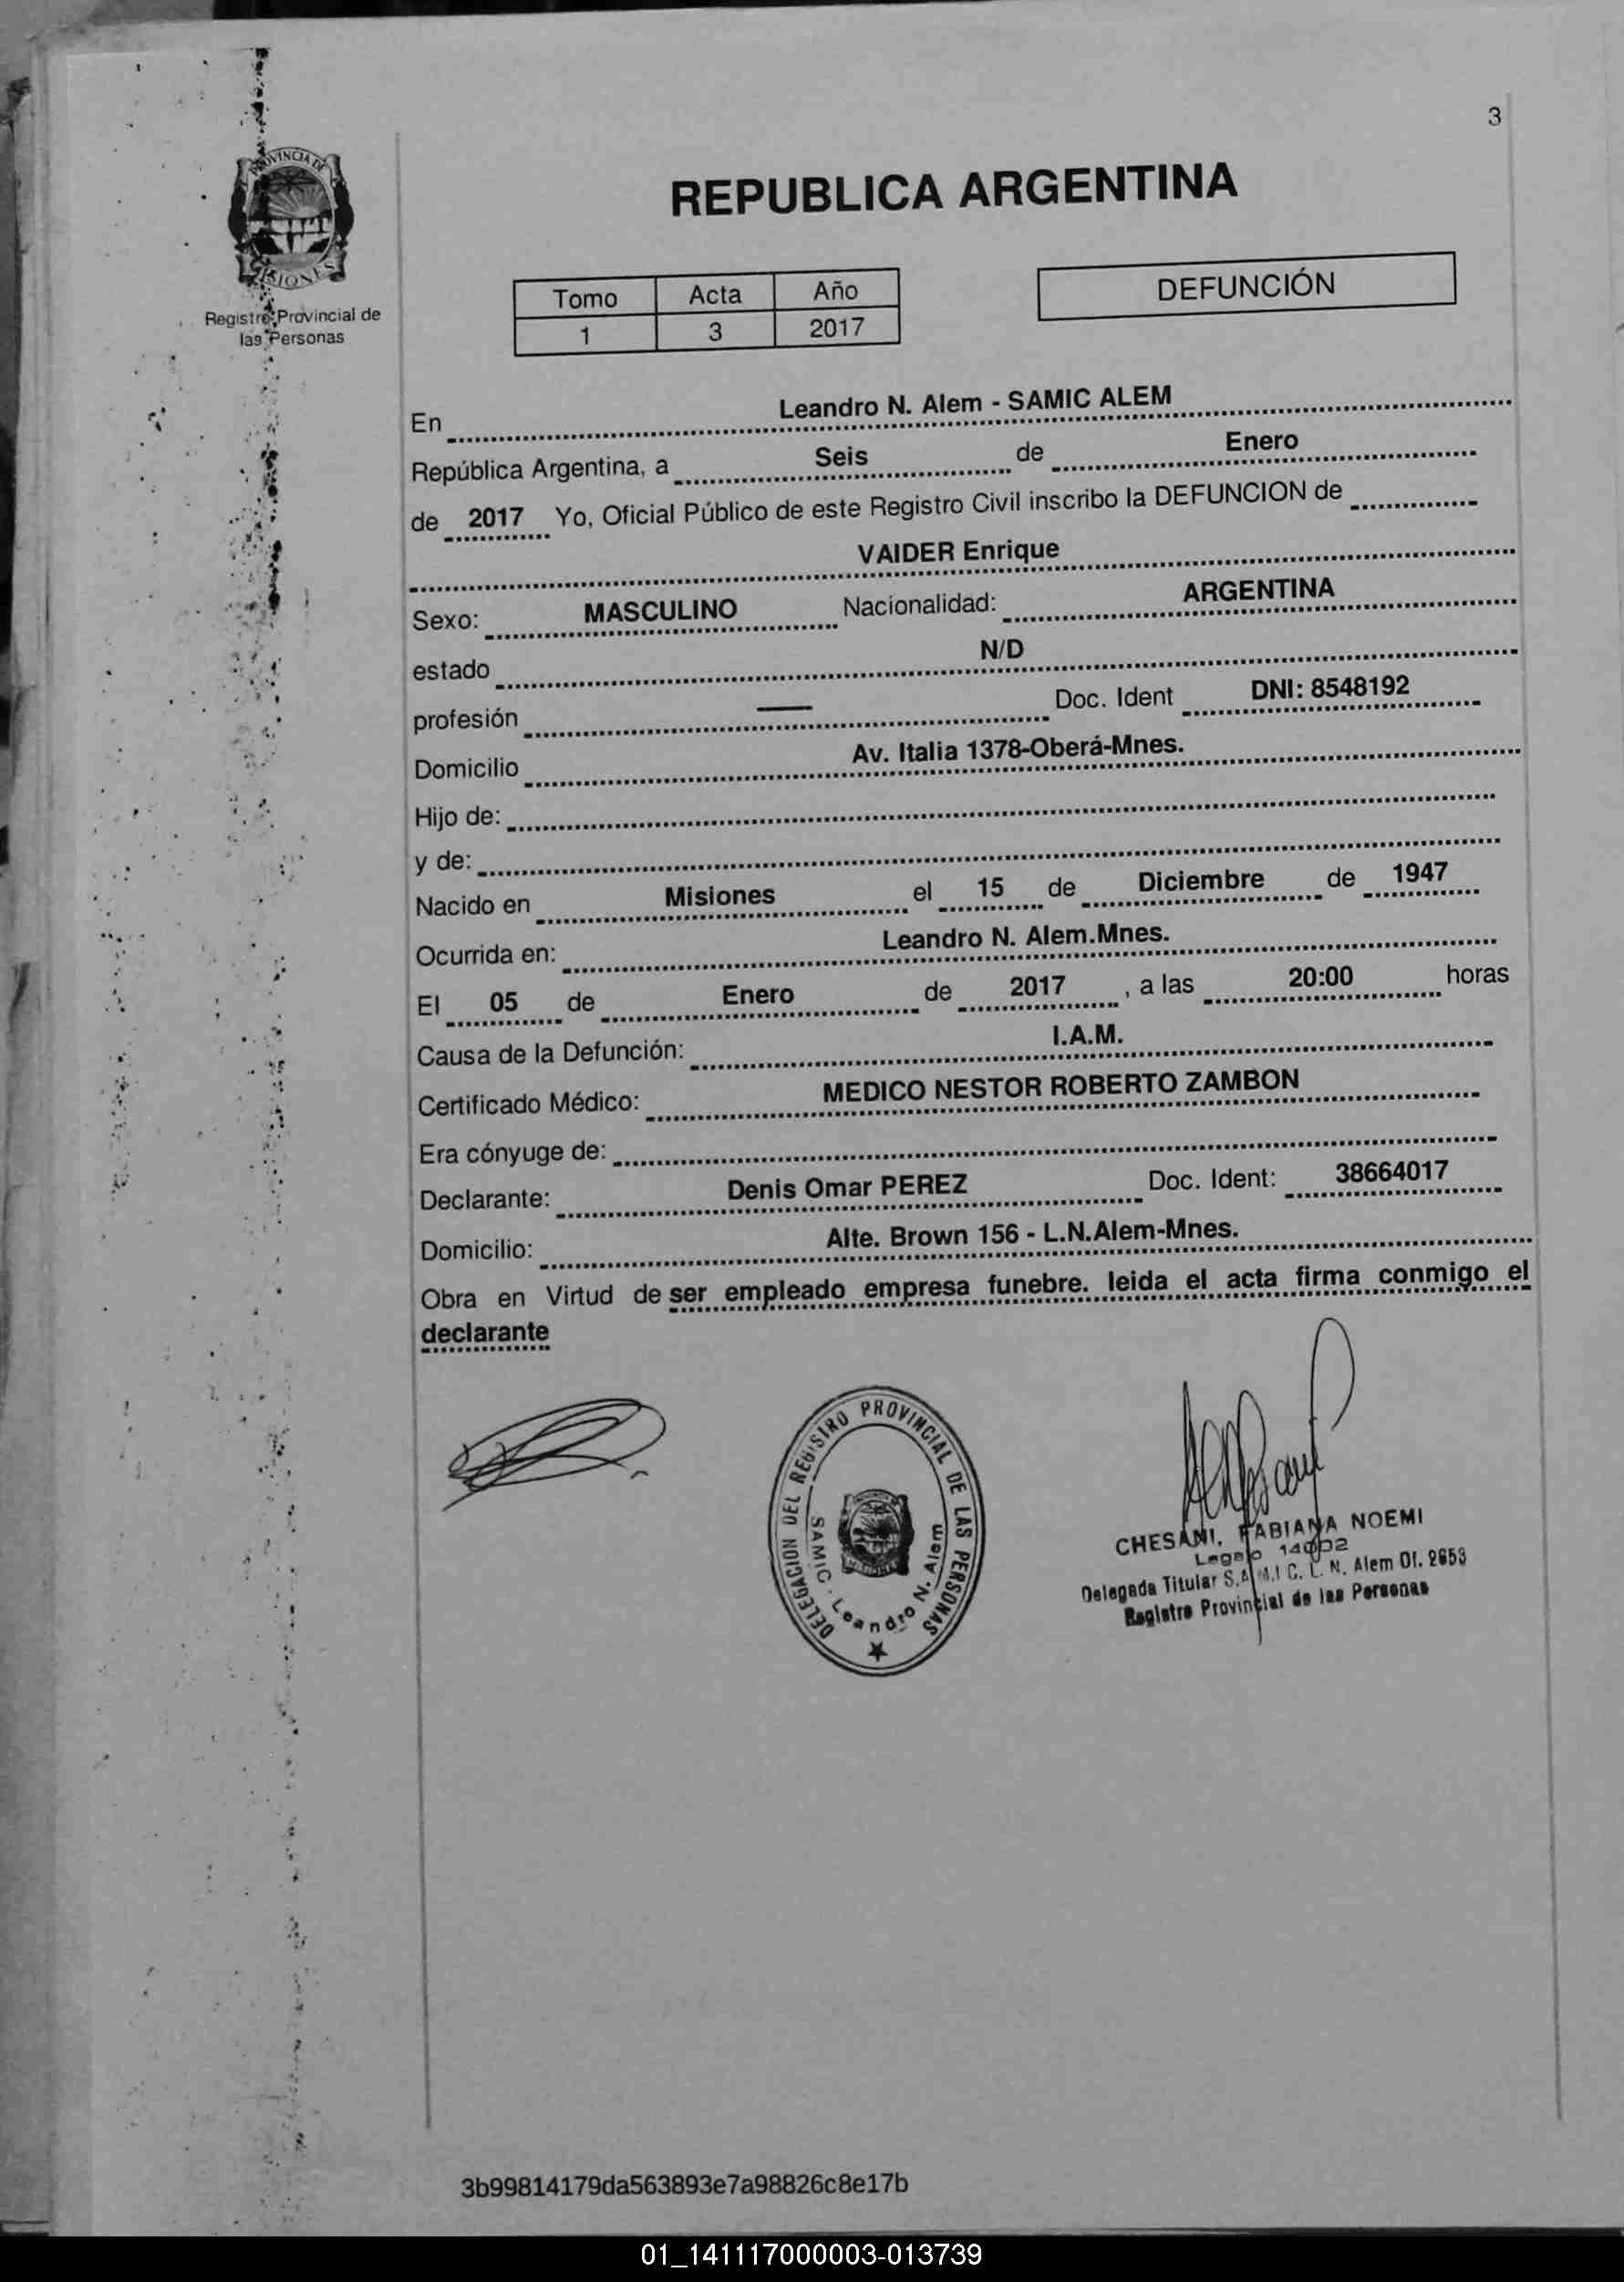 3
PROVINCIA DE
MISIONES
Registro Provincial de
las Personas
REPUBLICA ARGENTINA
Tomo Acta Año
1 3 2017
DEFUNCIÓN
En Leandro N. Alem - SAMIC ALEM
República Argentina, a Seis de Enero
de 2017 Yo, Oficial Público de este Registro Civil inscribo la DEFUNCION de
VAIDER Enrique
Sexo: MASCULINO Nacionalidad: ARGENTINA
estado N/D
profesión — Doc. Ident DNI: 8548192
Domicilio Av. Italia 1378-Oberá-Mnes.
Hijo de:
y de:
Nacido en Misiones el 15 de Diciembre de 1947
Ocurrida en: Leandro N. Alem.Mnes.
El 05 de Enero de 2017 , a las 20:00 horas
Causa de la Defunción: I.A.M.
Certificado Médico: MEDICO NESTOR ROBERTO ZAMBON
Era cónyuge de:
Declarante: Denis Omar PEREZ Doc. Ident: 38664017
Domicilio: Alte. Brown 156 - L.N.Alem-Mnes.
Obra en Virtud de ser empleado empresa funebre. leida el acta firma conmigo el
declarante
DELEGACION DEL REGISTRO PROVINCIAL DE LAS PERSONAS
SAMIC - Leandro N. Alem
CHESANI, FABIANA NOEMI
Legajo
Delegada Titular S.A.M.I C. L. N. Alem Of. 2653
Registro Provincial de las Personas
3b99814179da563893e7a98826c8e17b
01_141117000003-013739